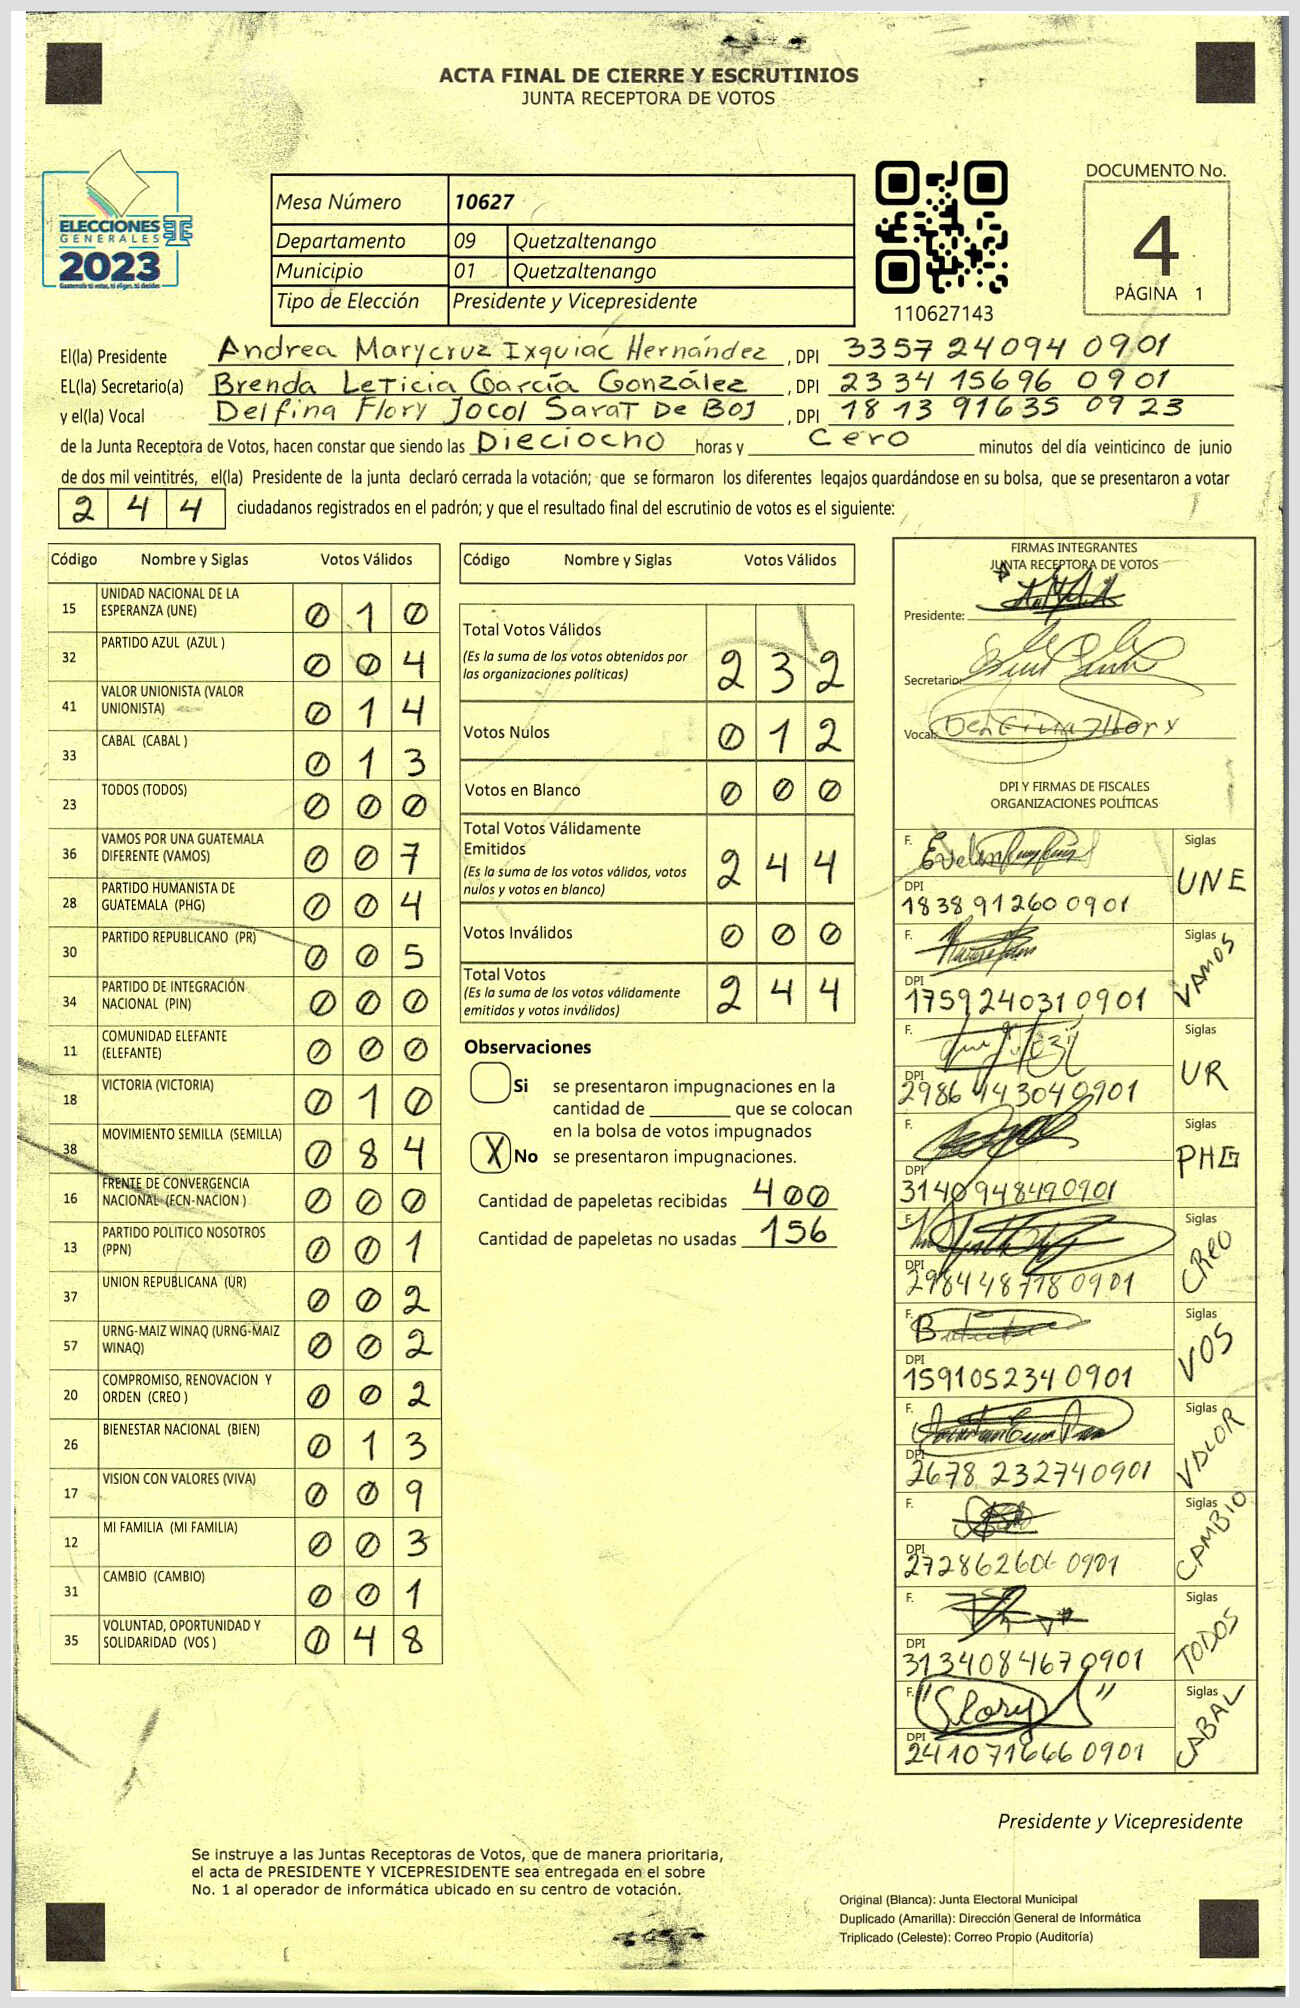 ACTA FINAL DE CIERRE Y ESCRUTINIOS
JUNTA RECEPTORA DE VOTOS
ELECCIONES
GENERALES
2023
Guatemala tú votas, tú eliges, tú decides
Mesa Número 10627
Departamento 09 Quetzaltenango
Municipio 01 Quetzaltenango
Tipo de Elección Presidente y Vicepresidente
110627143
DOCUMENTO No.
4
PÁGINA 1
El(la) Presidente Andrea Marycruz Ixquiac Hernández, DPI 3357 24094 0901
EL(la) Secretario(a) Brenda Leticia García González, DPI 2334 15696 0901
y el(la) Vocal Delfina Flory Jocol Sarat De Boj, DPI 1813 91635 0923
de la Junta Receptora de Votos, hacen constar que siendo las Dieciocho horas y Cero minutos del día veinticinco de junio
de dos mil veintitrés, el(la) Presidente de la junta declaró cerrada la votación; que se formaron los diferentes legajos guardándose en su bolsa, que se presentaron a votar
2 4 4 ciudadanos registrados en el padrón; y que el resultado final del escrutinio de votos es el siguiente:
Código Nombre y Siglas Votos Válidos
15 UNIDAD NACIONAL DE LA
ESPERANZA (UNE) 0 1 0
32 PARTIDO AZUL (AZUL ) 0 0 4
41 VALOR UNIONISTA (VALOR
UNIONISTA) 0 1 4
33 CABAL (CABAL ) 0 1 3
23 TODOS (TODOS) 0 0 0
36 VAMOS POR UNA GUATEMALA
DIFERENTE (VAMOS) 0 0 7
28 PARTIDO HUMANISTA DE
GUATEMALA (PHG) 0 0 4
30 PARTIDO REPUBLICANO (PR) 0 0 5
34 PARTIDO DE INTEGRACIÓN
NACIONAL (PIN) 0 0 0
11 COMUNIDAD ELEFANTE
(ELEFANTE) 0 0 0
18 VICTORIA (VICTORIA) 0 1 0
38 MOVIMIENTO SEMILLA (SEMILLA) 0 8 4
16 FRENTE DE CONVERGENCIA
NACIONAL (FCN-NACION ) 0 0 0
13 PARTIDO POLITICO NOSOTROS
(PPN) 0 0 1
37 UNION REPUBLICANA (UR) 0 0 2
57 URNG-MAIZ WINAQ (URNG-MAIZ
WINAQ) 0 0 2
20 COMPROMISO, RENOVACION Y
ORDEN (CREO ) 0 0 2
26 BIENESTAR NACIONAL (BIEN) 0 1 3
17 VISION CON VALORES (VIVA) 0 0 9
12 MI FAMILIA (MI FAMILIA) 0 0 3
31 CAMBIO (CAMBIO) 0 0 1
35 VOLUNTAD, OPORTUNIDAD Y
SOLIDARIDAD (VOS ) 0 4 8
Código Nombre y Siglas Votos Válidos
Total Votos Válidos
(Es la suma de los votos obtenidos por
las organizaciones políticas) 2 3 2
Votos Nulos 0 1 2
Votos en Blanco 0 0 0
Total Votos Válidamente
Emitidos
(Es la suma de los votos válidos, votos
nulos y votos en blanco) 2 4 4
Votos Inválidos 0 0 0
Total Votos
(Es la suma de los votos válidamente
emitidos y votos inválidos) 2 4 4
Observaciones
Si se presentaron impugnaciones en la
cantidad de ________ que se colocan
en la bolsa de votos impugnados
X No se presentaron impugnaciones.
Cantidad de papeletas recibidas 400
Cantidad de papeletas no usadas 156
FIRMAS INTEGRANTES
JUNTA RECEPTORA DE VOTOS
Presidente:
Secretario:
Vocal: Delfina Flory
DPI Y FIRMAS DE FISCALES
ORGANIZACIONES POLÍTICAS
F. Evelin Siglas
DPI UNE
1838 91260 0901
F. Siglas
DPI VAMOS
1759 24031 0901
F. Siglas
DPI UR
2986 44304 0901
F. Siglas
DPI PHG
3140 94849 0901
F. Siglas
DPI CREO
2984 48778 0901
F. Siglas
DPI VOS
1591 05234 0901
F. Siglas
DPI VALOR
2678 23274 0901
F. Siglas
DPI CAMBIO
2728 62606 0901
F. Siglas
DPI TODOS
3134 08467 0901
F. "Glory" Siglas
DPI CABAL
2410 71666 0901
Presidente y Vicepresidente
Se instruye a las Juntas Receptoras de Votos, que de manera prioritaria,
el acta de PRESIDENTE Y VICEPRESIDENTE sea entregada en el sobre
No. 1 al operador de informática ubicado en su centro de votación.
Original (Blanca): Junta Electoral Municipal
Duplicado (Amarilla): Dirección General de Informática
Triplicado (Celeste): Correo Propio (Auditoría)